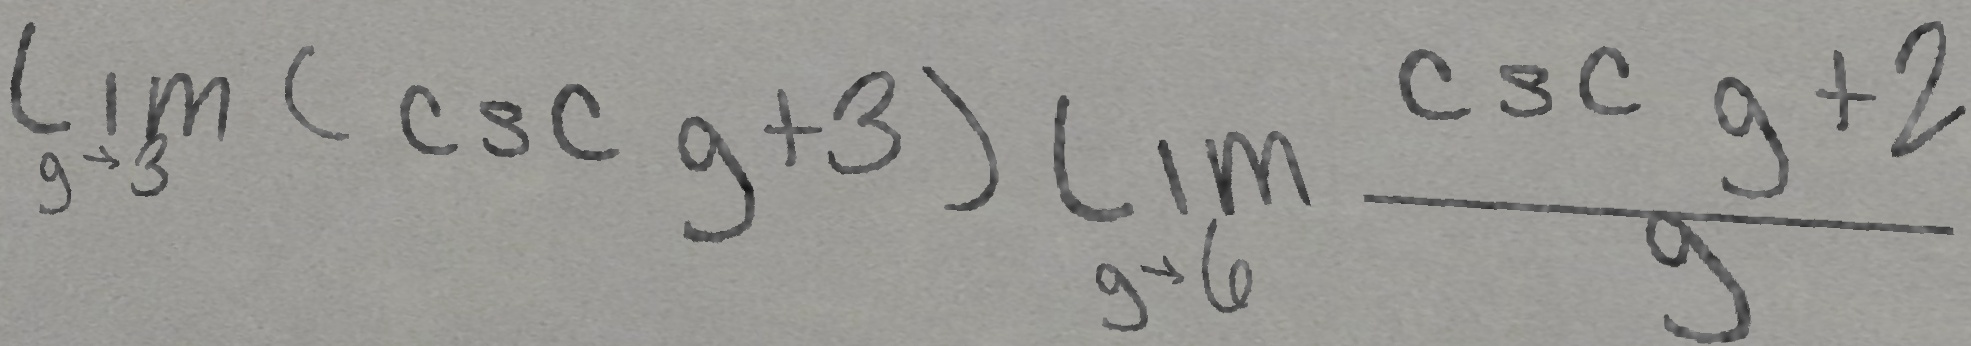 \lim_{g \to 3} ( \csc g + 3 ) \lim_{g \to 6} \frac{\csc g + 2}{g}